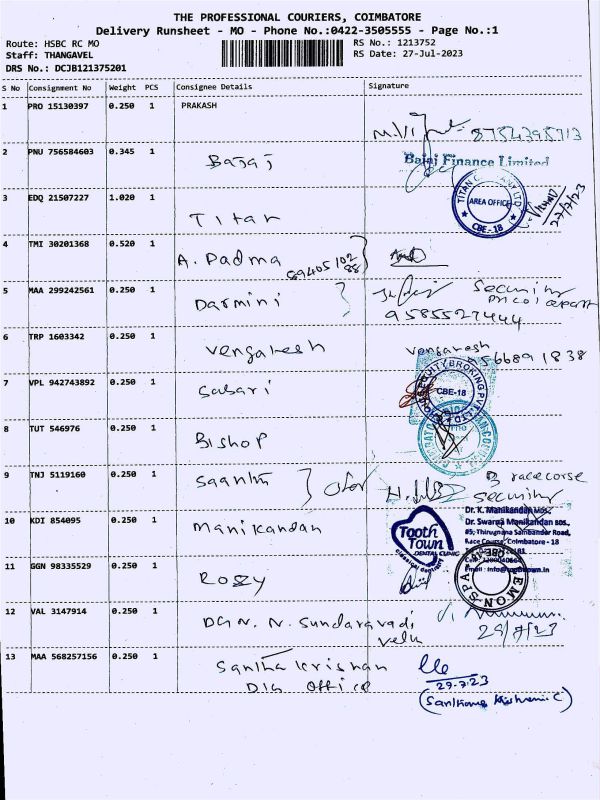 THE PROFESSIONAL COURIERS, COIMBATORE
Delivery Runsheet - MO - Phone No.:0422-3505555 - Page No.:1
Route: HSBC RC MO
RS No.: 1213752
Staff: THANGAVEL
RS Date: 27-Jul-2023
DRS No.: DCJB121375201
S No Consignment No Weight PCS Consignee Details Signature
1 PRO 15130397 0.250 1 PRAKASH
8754395713
2 PNU 756584603 0.345 1 Bajaj
Bajaj Finance Limited
3 EDQ 21507227 1.020 1 Titan
TITAN COMPANY LTD
AREA OFFICE
CBE-18
27/7/23
4 TMI 30201368 0.520 1 A. Padma 89405102
88
5 MAA 299242561 0.250 1 Darmini
Security
9585527444
6 TRP 1603342 0.250 1 Vengatesh
Vengatesh
566891838
7 VPL 942743892 0.250 1 Sabari
EQUITY BROKING PVT. LTD
CBE-18
8 TUT 546976 0.250 1 Bishop
9 TNJ 5119160 0.250 1
racecorse
Security
10 KDI 854095 0.250 1 Manikandan
Tooth
Town
DENTAL CLINIC
Dr. K. Manikandan MDS.
Dr. Swarna Manikandan BDS.,
#5, Thirugnana Sambander Road,
Race Course, Coimbatore - 18
Email : info@toothtown.in
11 GGN 98335529 0.250 1 Rossy
12 VAL 3147914 0.250 1 DGN. N. Sundaravadi
velu
29/7/23
13 MAA 568257156 0.250 1 Santha Krishnan
Dig office
29.7.23